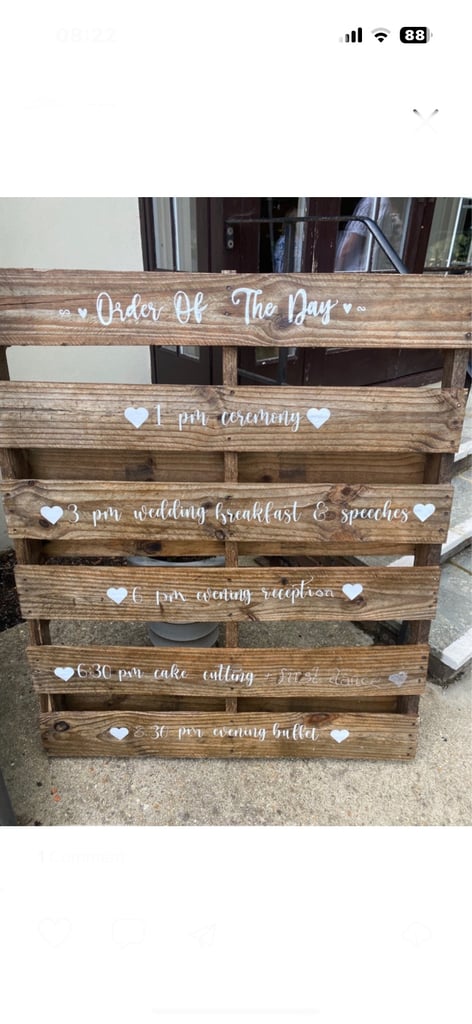 08:22
88
Order Of The Day
1 pm ceremony
3 pm wedding breakfast & speeches
6 pm evening reception
6.30 pm cake cutting + first dance
8.30 pm evening buffet